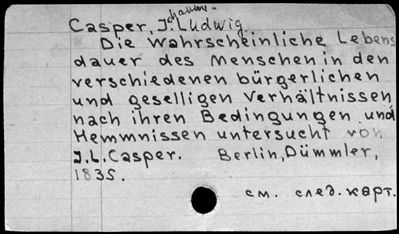 Casper, J. Ludwig.
Die wahrscheinliche Lebens
dauer des Menschen in den
verschiedenen bürgerlichen
und geselligen Verhältnissen
nach ihren Bedingungen und
Hemmnissen untersucht von
J.L.Casper. Berlin, Dümmler,
1835.
см. след. карт.